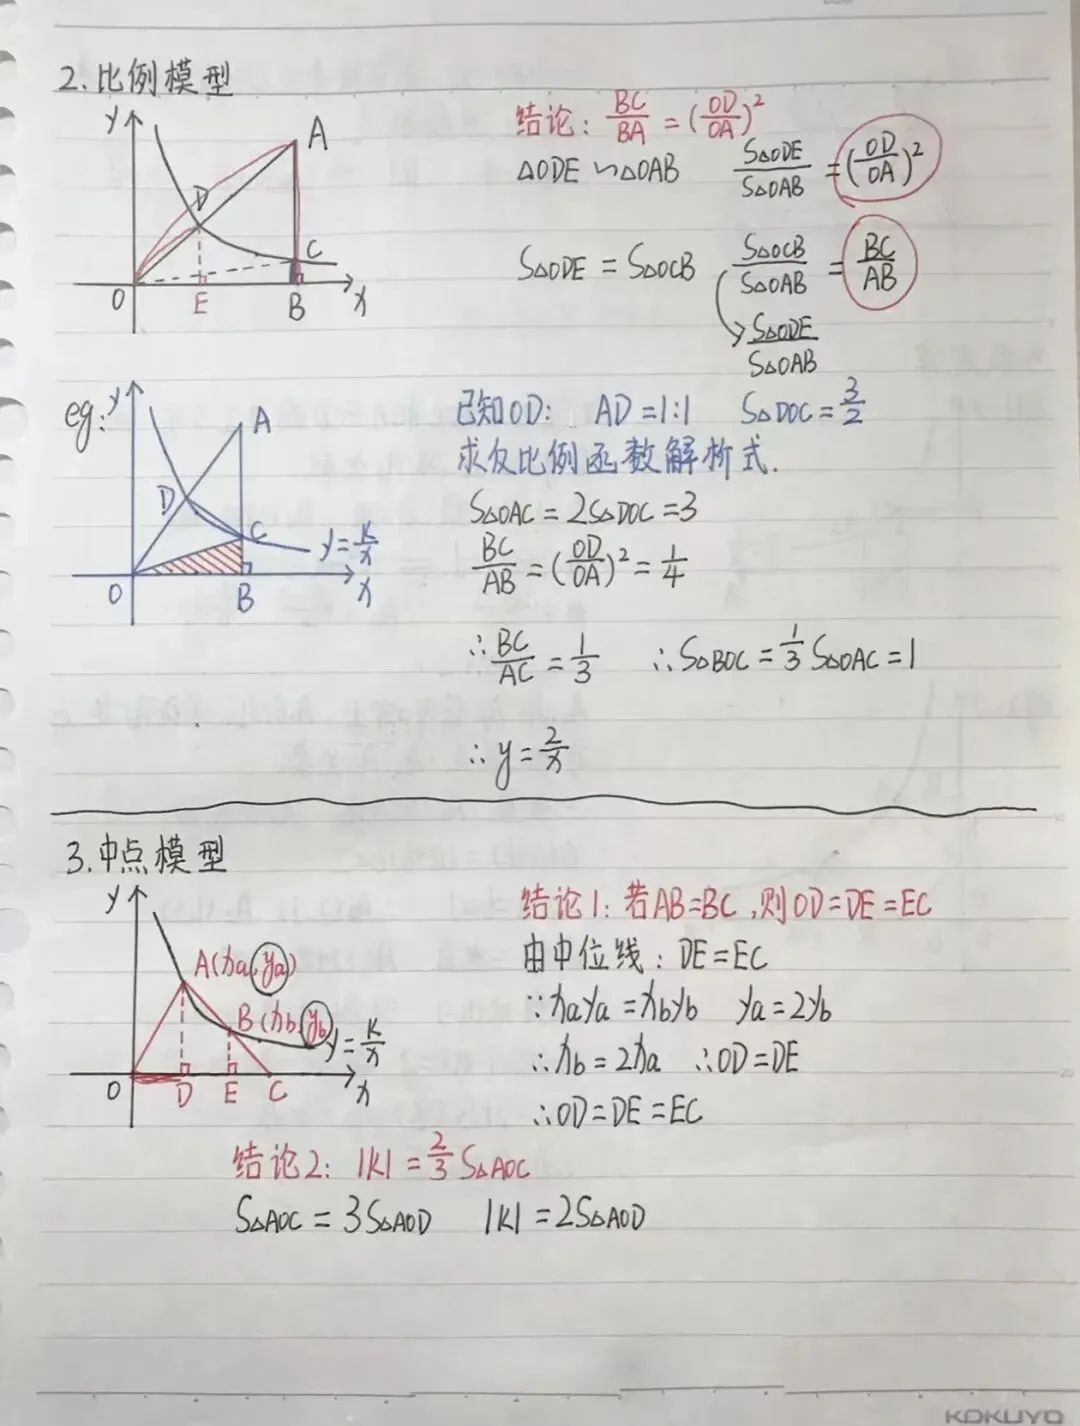 2.比例模型
y A D C O E B x
结论: BC/BA = (OD/OA)²
△ODE ∽ △OAB S△ODE/S△OAB = (OD/OA)²
S△ODE = S△OCB S△OCB/S△OAB = BC/AB
S△ODE/S△OAB
eg:
y A D C y=K/x O B x
已知OD: AD=1:1 S△DOC=3/2
求反比例函数解析式.
S△OAC = 2S△DOC = 3
BC/AB = (OD/OA)² = 1/4
∴BC/AC = 1/3 ∴S△BOC = 1/3 S△OAC = 1
∴y = 2/x
3.中点模型
y A(xa,ya) B(xb,yb) y=K/x O D E C x
结论1: 若AB=BC,则OD=DE=EC
由中位线: DE=EC
∵xaya=xbyb ya=2yb
∴xb=2xa ∴OD=DE
∴OD=DE=EC
结论2: |K|=2/3 S△AOC
S△AOC = 3S△AOD |K|=2S△AOD
KOKUYO